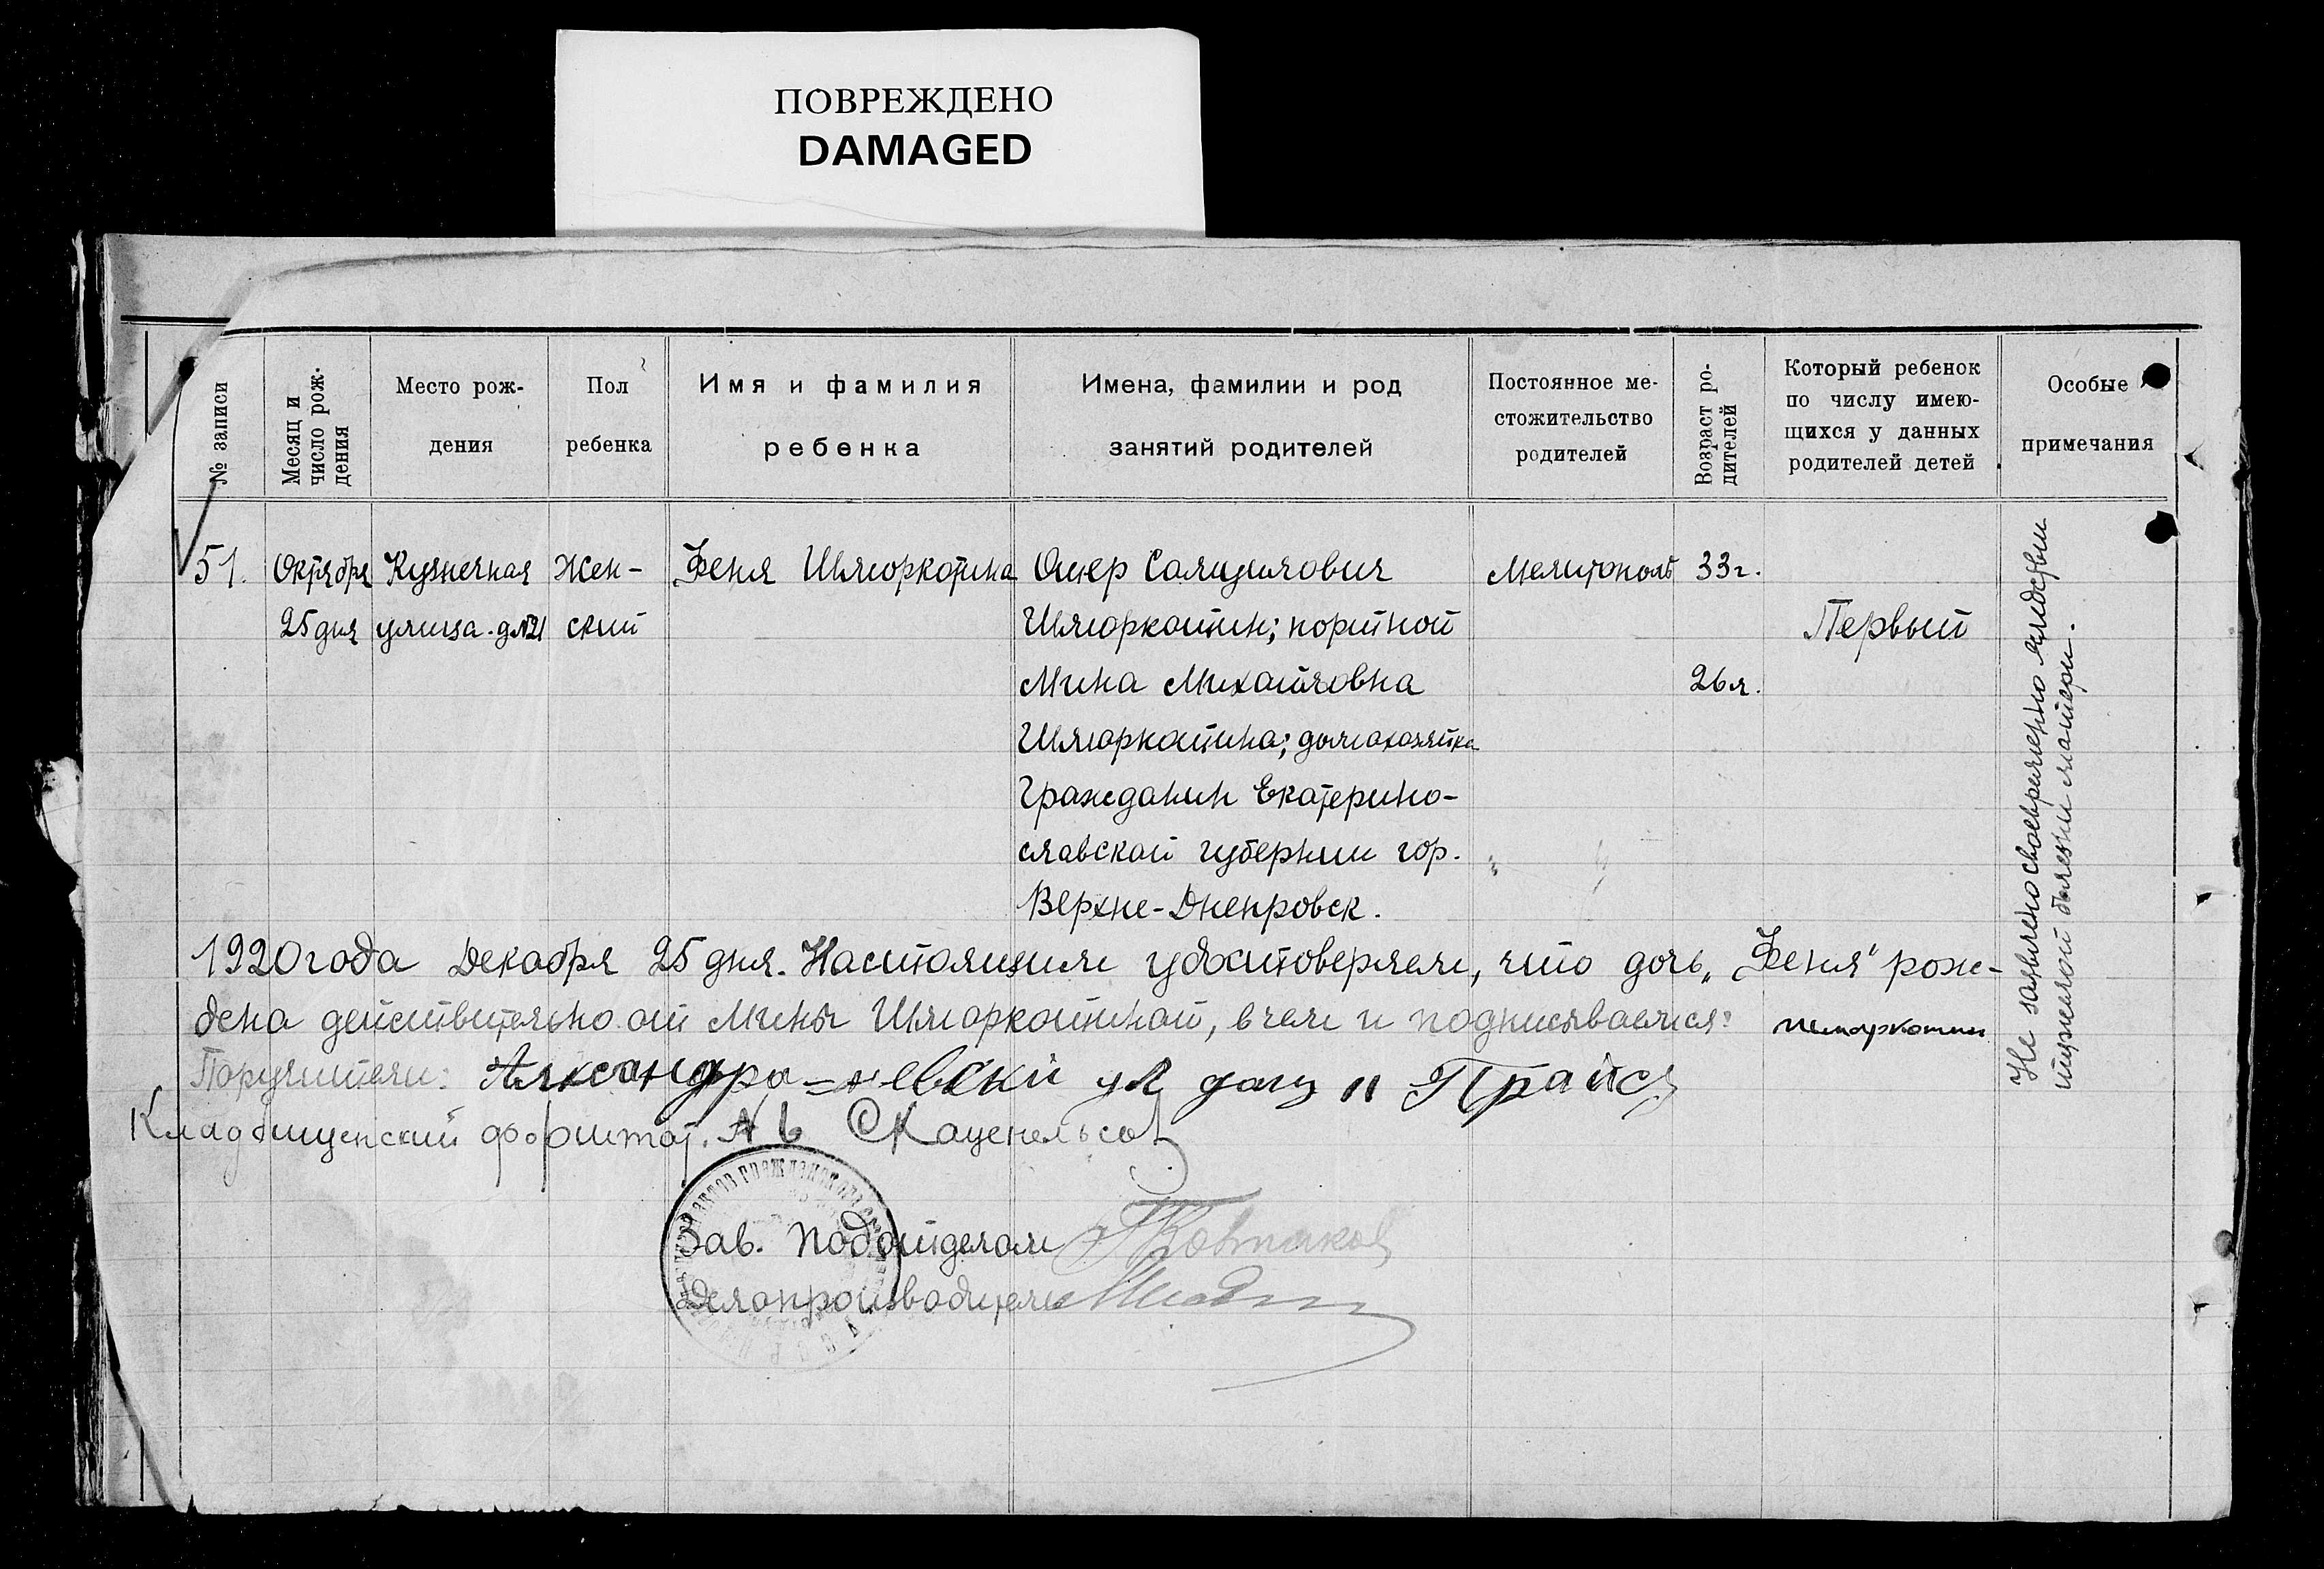 ПОВРЕЖДЕНО
DAMAGED
№ записи
Месяц и
число рож-
дения
Место рож-
дения
Пол
ребенка
Имя и фамилия
ребенка
Имена, фамилии и род
занятий родителей
Постоянное ме-
стожительство
родителей
Возраст ро-
дителей
Который ребенок
по числу имею-
щихся у данных
родителей детей
Особые
примечания
51. Октября Кузнечная Жен- Феня Шморкатина Ошер Салицилович Мелитополь 33 г.
25 дня улица д №21 ский Шморкатин; портной Первый
Мина Михайловна 26 л.
Шморкатина; домохозяйка
Гражданин Екатерино-
славской губернии гор.
Верхне-Днепровск.
Не заявлено своевременно вследствии
тяжелой болезни матери.
1920 года Декабря 25 дня. Настоящим удостоверяем, что дочь „Феня" рож-
дена действительно от Мины Шморкатиной, в чем и подписываемся: Шморкатин
Поручители: Александро-невский ул дом 11 Прайс
Кладбищенский форштат. № 6 С Каценельсон
Зав. Подотделом
Делопроизводитель